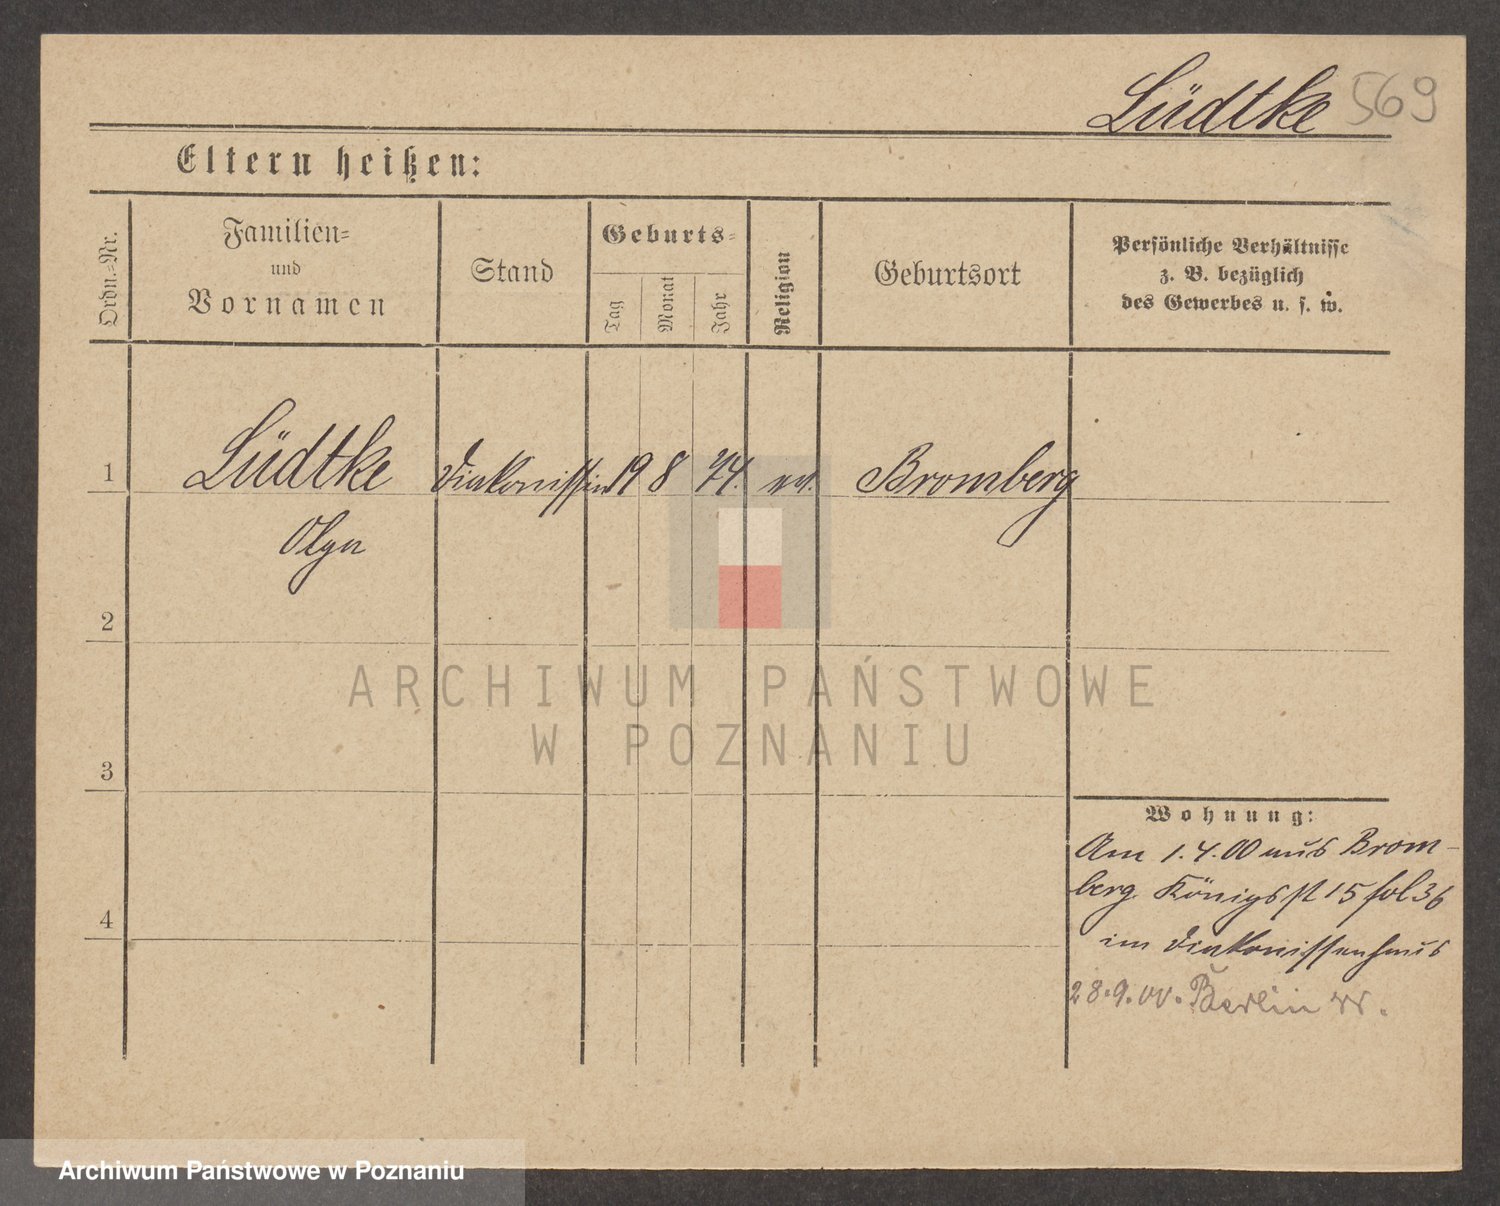 Lüdtke 569
Eltern heißen:
Ordn.-Nr.
Familien-
und
Vornamen
Stand
Geburts-
Tag
Monat
Jahr
Religion
Geburtsort
Persönliche Verhältnisse
z. B. bezüglich
des Gewerbes u. s. w.
1 Lüdtke Diakonissin 19 8 74. ev. Bromberg
Olga
2
3
4
Wohnung:
Am 1.4.00 aus Brom-
berg Königsst 15 fol 36
im Diakonissenhaus
28.9.00. Berlin
ARCHIWUM PAŃSTWOWE
W POZNANIU
Archiwum Państwowe w Poznaniu